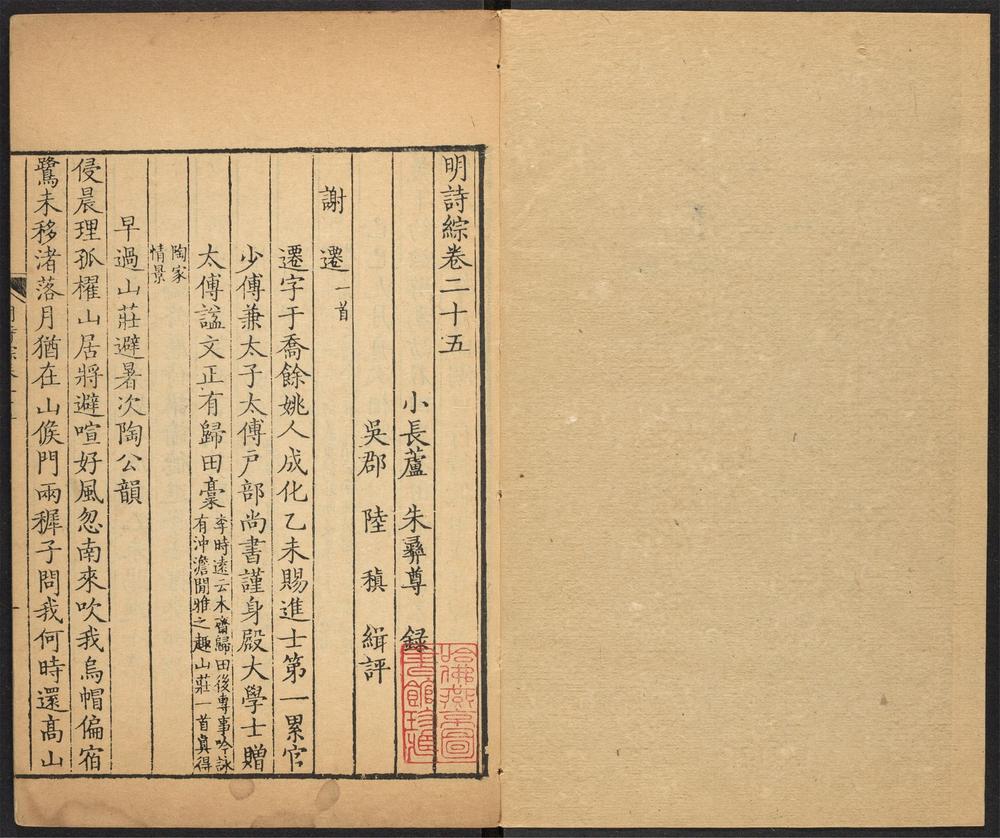 明詩綜卷二十五
小長蘆 朱彝尊 録
吳郡 陸 稹 緝評
謝遷一首
遷字于喬餘姚人成化乙未賜進士第一累官
少傅兼太子太傅戶部尚書謹身殿大學士贈
太傅諡文正有歸田稾李時遠云木齋歸田後專事吟詠
有沖澹閒雅之趣山莊一首真得
陶家
情景
早過山莊避暑次陶公韻
侵晨理孤櫂山居將避喧好風忽南來吹我烏帽偏宿
鷺未移渚落月猶在山候門兩穉子問我何時還高山
哈佛燕京圖
書館珍藏